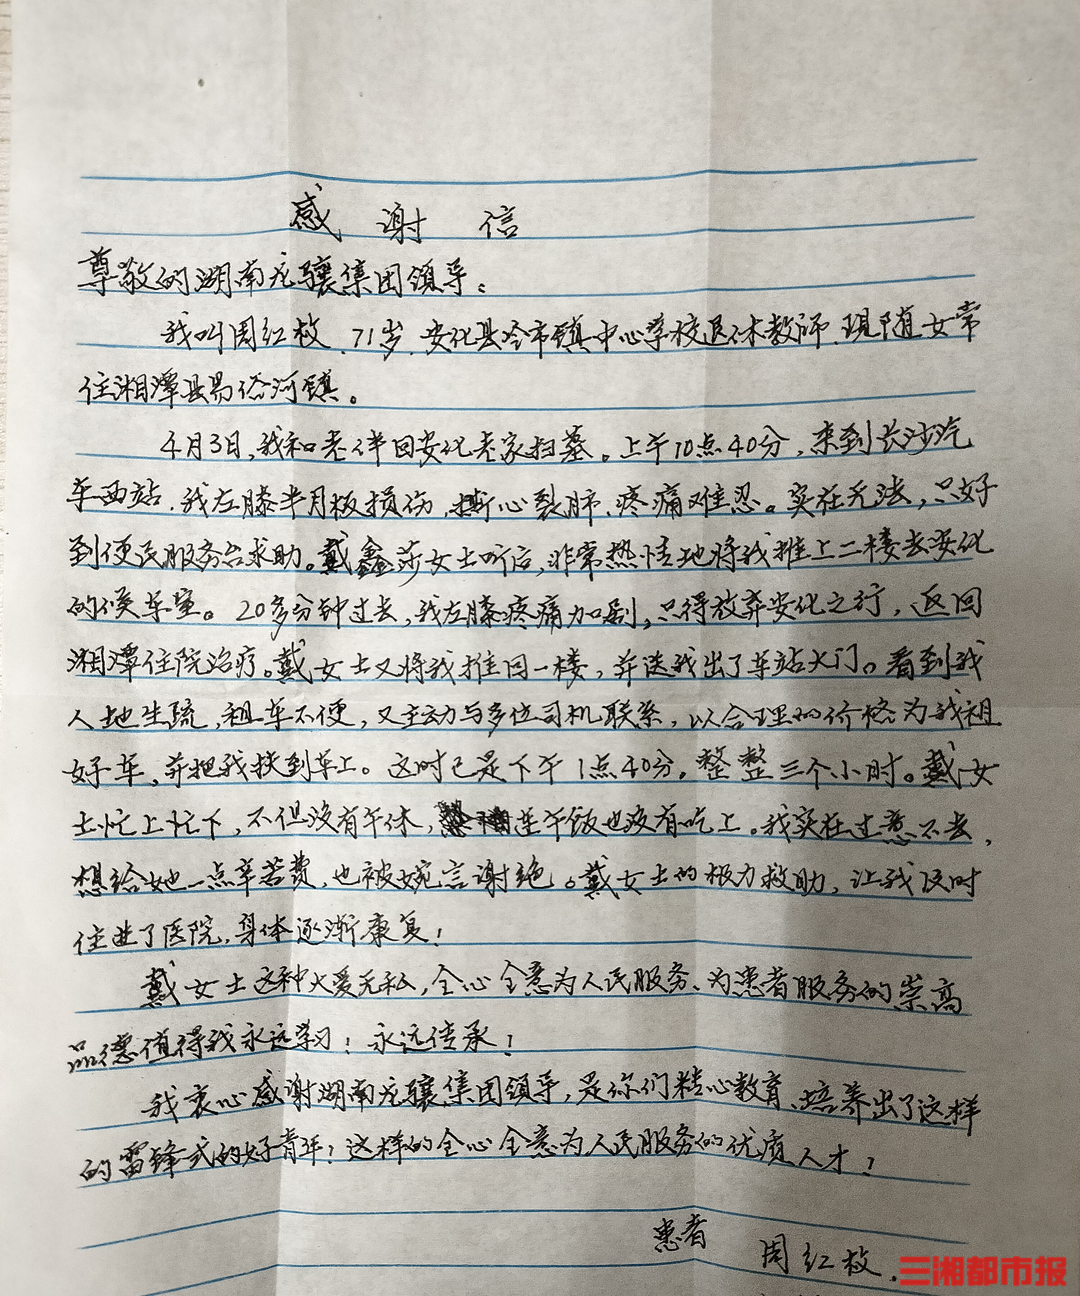 感谢信
尊敬的湖南龙骧集团领导：
我叫周红枚，71岁，安化县冷市镇中心学校退休教师，现随女常
住湘潭县易俗河镇。
4月3日，我和老伴回安化老家扫墓。上午10点40分，来到长沙汽
车西站，我左膝半月板损伤，撕心裂肺、疼痛难忍。实在无法，只好
到便民服务台求助。戴鑫莎女士听后，非常热情地将我推上二楼去安化
的候车室。20多分钟过去，我左膝疼痛加剧，只得放弃安化之行，返回
湘潭住院治疗。戴女士又将我推回一楼，并送我出了车站大门。看到我
人地生疏，租车不便，又主动与多位司机联系，以合理的价格为我租
好车，并把我扶到车上。这时已是下午1点40分，整整三个小时。戴女
士忙上忙下，不但没有午休，连午饭也没有吃上。我实在过意不去，
想给她一点辛苦费，也被婉言谢绝。戴女士的极力救助，让我及时
住进了医院，身体逐渐康复！
戴女士这种大爱无私，全心全意为人民服务、为患者服务的崇高
品德值得我永远学习！永远传承！
我衷心感谢湖南龙骧集团领导，是你们精心教育、培养出了这样
的雷锋式的好青年！这样的全心全意为人民服务的优质人才！
患者 周红枚.
三湘都市报